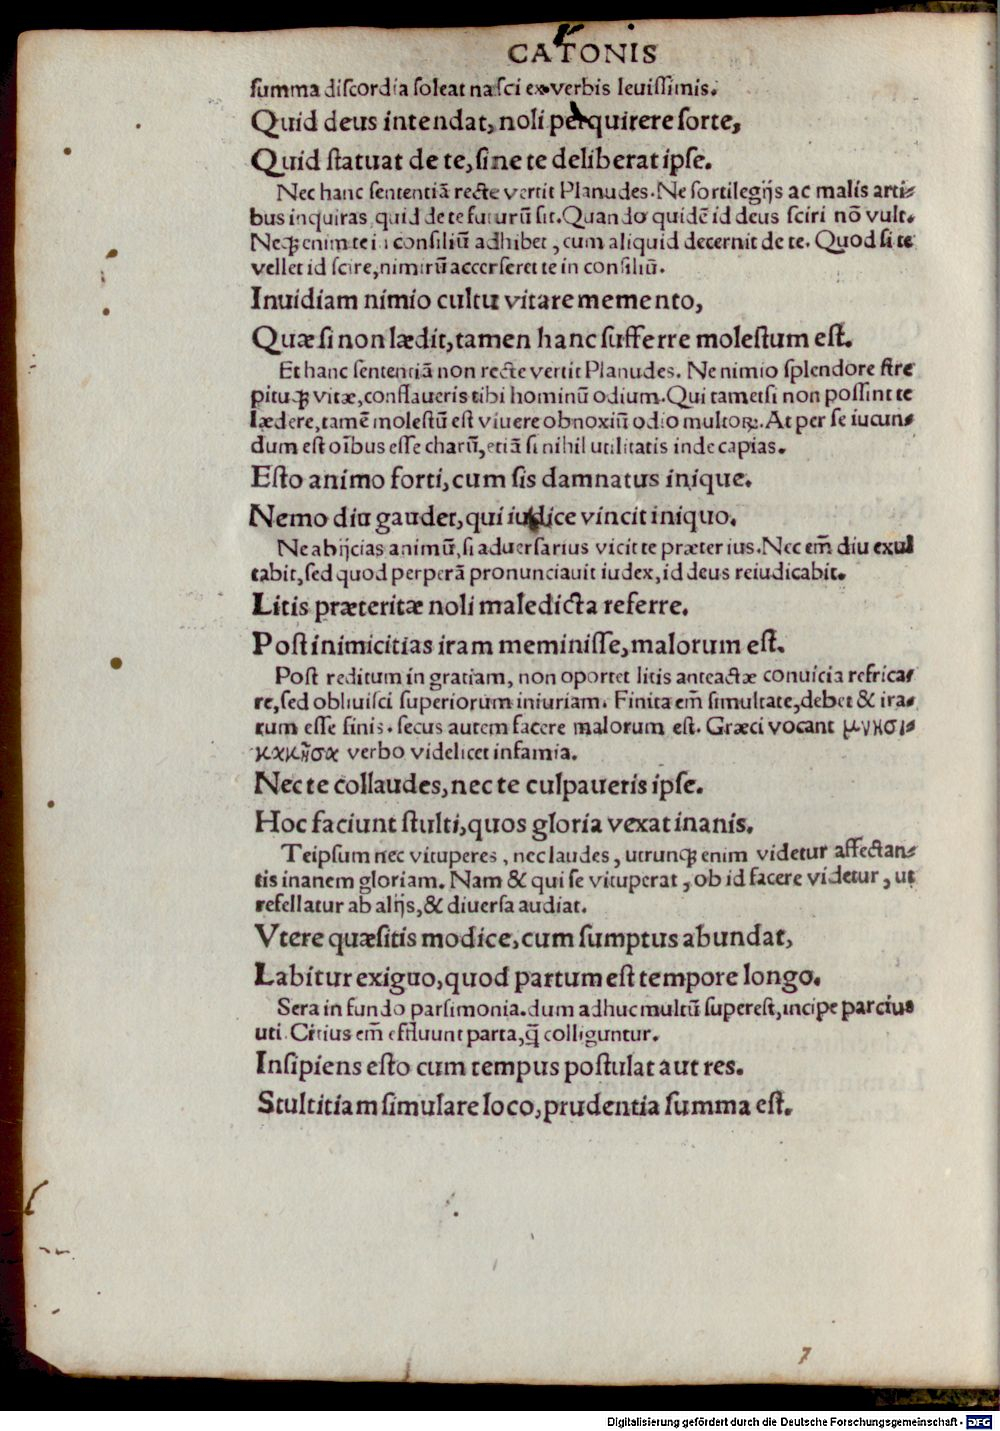 CATONIS
summa discordia soleat nasci ex verbis leuissimis.
Quid deus intendat, noli perquirere sorte,
Quid statuat de te, sine te deliberat ipse.
Nec hanc sententiā recte vertit Planudes. Ne sortilegijs ac malis arti-
bus inquiras quid de te futurū sit. Quando quidē id deus sciri nō vult.
Neqꝫ enim te in consiliū adhibet, cum aliquid decernit de te. Quod si te
vellet id scire, nimirū accerseret te in consiliū.
Inuidiam nimio cultu vitare memento,
Quæ si non lædit, tamen hanc sufferre molestum est.
Et hanc sententiā non recte vertit Planudes. Ne nimio splendore stre
pituqꝫ vitæ, conflaueris tibi hominū odium. Qui tametsi non possint te
lædere, tamē molestū est viuere obnoxiū odio multoꝝ. At per se iucun-
dum est oībus esse charū, etiā si nihil utilitatis inde capias.
Esto animo forti, cum sis damnatus inique.
Nemo diu gaudet, qui iudice vincit iniquo.
Ne abijcias animū, si aduersarius vicit te præter ius. Nec em̄ diu exul
tabit, sed quod perperā pronunciauit iudex, id deus reiudicabit.
Litis præteritæ noli maledicta referre.
Post inimicitias iram meminisse, malorum est.
Post reditum in gratiam, non oportet litis anteactæ conuicia refrica-
re, sed obliuisci superiorum iniuriam. Finita em̄ simultate, debet & ira-
rum esse finis. secus autem facere malorum est. Græci vocant μνησι-
κακῆσα verbo videlicet infamia.
Nec te collaudes, nec te culpaueris ipse.
Hoc faciunt stulti, quos gloria vexat inanis.
Teipsum nec vituperes, nec laudes, utrunqꝫ enim videtur affectan-
tis inanem gloriam. Nam & qui se vituperat, ob id facere videtur, ut
refellatur ab alijs, & diuersa audiat.
Vtere quæsitis modice, cum sumptus abundat,
Labitur exiguo, quod partum est tempore longo.
Sera in fundo parsimonia. dum adhuc multū superest, incipe parcius
uti. Citius em̄ effluunt parta, q̄ colliguntur.
Insipiens esto cum tempus postulat aut res.
Stultitiam simulare loco, prudentia summa est.
7
Digitalisierung gefördert durch die Deutsche Forschungsgemeinschaft - DFG